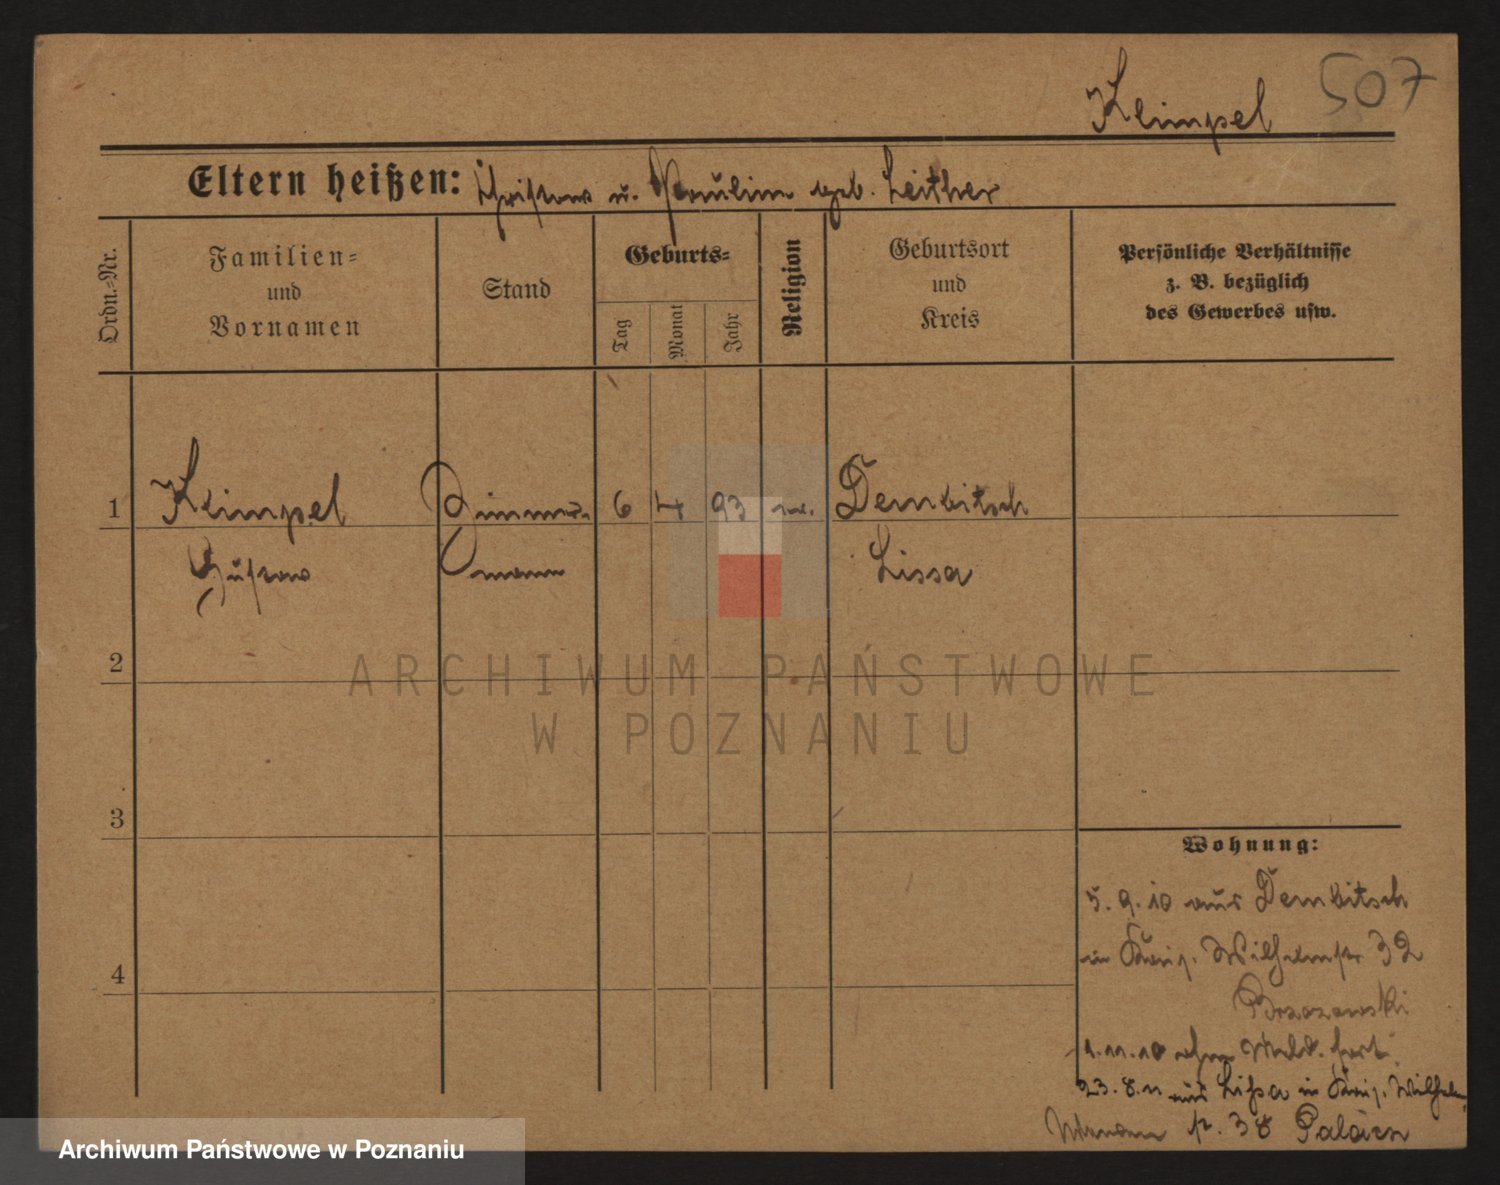 507
Klimpel
Eltern heißen: Gustav u. Paulina geb. Leither
Ordn.-Nr.
Familien-
und
Vornamen
Stand
Geburts-
Tag
Monat
Jahr
Religion
Geburtsort
und
Kreis
Persönliche Verhältnisse
z. B. bezüglich
des Gewerbes usw.
1 Klimpel Zimmer 6 4 93 ev. Dembitsch
Gustav mann Lissa
2
3
4
Wohnung:
5.9.10 aus Dembitsch
in König. Wilhelmstr 32
1.11.10 ohne Meld. fort
23.8.11 aus Lissa in König. Wilhelm
str. 38
ARCHIWUM PAŃSTWOWE
W POZNANIU
Archiwum Państwowe w Poznaniu